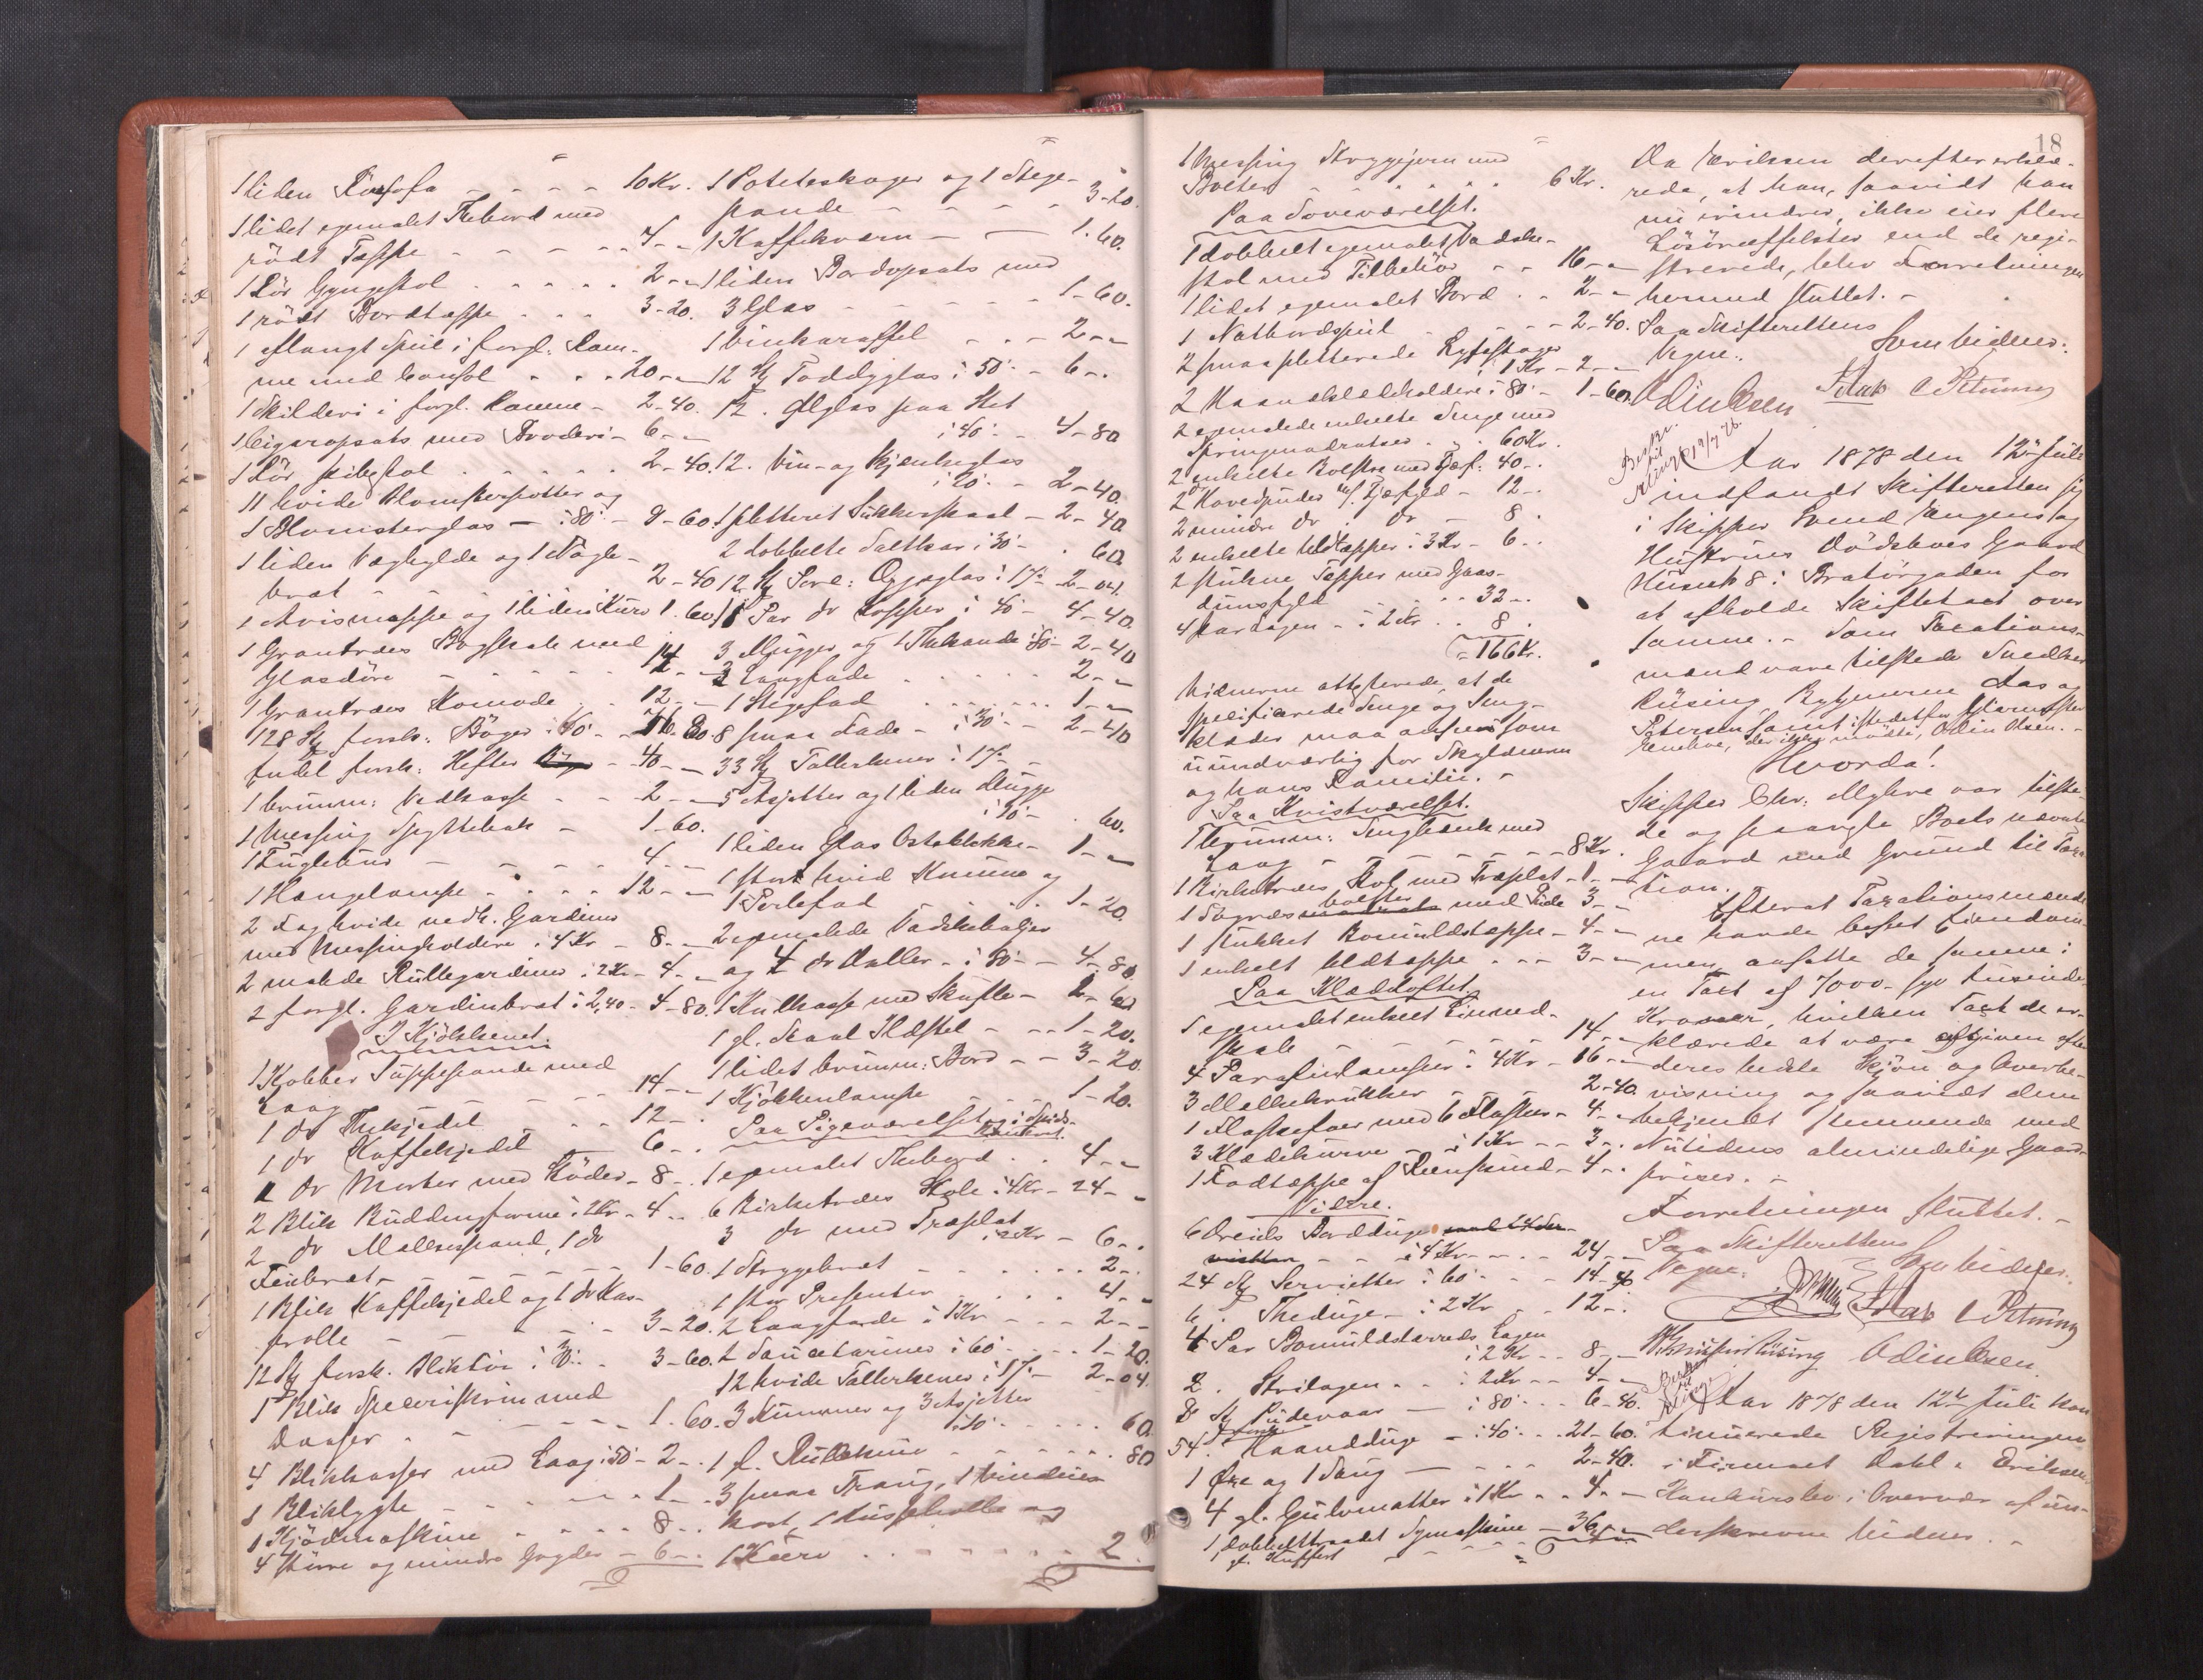 1 liden Rørsofa - - - - 10 Kr.
1 lidet egemalet Thebord med
rødt Tæppe - - - - - 4 - -
1 Rør Gyngestol . . . . . 2 - -
1 rødt Bordtæppe . . . 3 - 20.
1 aflangt Speil i forgl. Ram-
me med Consol . . . 20 - -
1 Skilderi i forgl. Ramme - 2 - 40.
1 Cigaropsats med Broderi - 6 - -
1 Rør . . . . . 2 - 40.
11 hvide Blomsterpotter og
1 Blomsterglas - i 80 - 9 - 60.
1 liden Væghylde og 1 Nøgle-
bræt - - - - - 2 - 40
1 Avismappe og 1 liden Kurv 1. 60
1 Grantræes Bogskab med
Glasdøre - - - - - 14 - -
1 Grantræes Komode . . 12 - -
128 St. forsk. Bøger i 60 - 76. 80.
Endel forsk. Hefter - 40 - -
1 brunm: Vedkasse - - 2 - -
1 Messing Spyttebak - 1 - 60.
1 Fuglebuur - - - - 4 - -
1 Hængelampe - . . . 12 - -
2 Fag hvide nedh. Gardiner
med Messingholdere i 4 Kr - 8 - -
2 malede Rullegardiner i 2 Kr - 4 - -
2 forgl. Gardinbræt i 2,40 - 4 - 80.
I Kjøkkenet.
1 Kobber Suppepande med
Laag - - - - - 14 - -
1 do Thekjedel - - 12 - .
1 do Kaffekjedel 6 - .
1 do Morter med Støder - 8 - .
2 Blik Buddingforme i 2 Kr - 4 - .
2 do Melkespand, 1 do
- - - - - - 1 - 60.
1 Blik Kaffekjedel og 1 do Kas-
serolle - - - - - . 3 - 20.
12 St forsk. Bliktøi i 30 . 3 - 60.
1 Blik Speceriskrin med
Daaser - - - - - - 1. 60.
4 Blikkasser med Laag i 50 - 2 - .
1 Bliklygte - - - - - . 1 - .
1 Kjødmaskine . . . . 8 . .
4 større og mindre Gryder - 6 - .
1 Poteteskoger og 1 Stege-
pande - - - - - 3 - 20.
1 Kaffekværn - — 1. 60.
1 liden Bordopsats med
3 Glas - - - - - - 1 - 60.
1 Vinkaraffel . . - 2 - -
12 St Toddyglas i 50 - 6 - .
12 . Ølglas paa Stet
i 40 - 4 - 80
12 . Vin- og Skjænkeglas
i 20 - 2 - 40.
1 pletteret Sukkerskaal - 2 - 40
2 dobbelte Saltkar i 30 - . 60.
12 St : Æggeglas i 17 - 2 - 04.
11 Par do Kopper i 40 - 4 - 40.
3 Mugger og 1 Thekande i 80 - 2 - 40
2 Laagfade . . . . . 2 - -
1 Stegefad . . . . . 1 - -
8 smaa Fade - i 30 - 2 - 40
33 St Tallerkener i 17 -
5 Asjetter og 1 liden Mugge
i 10 - . 60.
1 liden Glas Osteklokke - 1 - -
1 stor hvid Kumme og
1 . . . 1 - 20.
2 egemalede Vadskebaljer
og 4 do Baller - i 80 - 4 - 80
1 Kulkasse med Skuffe - 2 - 60
1 gl. - - - 1 - 20.
1 lidet brunm: Bord - - 3 - 20.
1 Kjøkkenlampe . - . 1 - 20.
Paa Pigeværelset og i Spids-
1 egemalet Thebord . . 4 - -
6 Birketræes Stole i 4 Kr - 24 - .
3 do med Træplat
i 2 Kr - 6 - .
1 Strygebræt - - - . . . 2 - .
1 stor Presenter . . . . 4 - -
2 Laagfade i 1 Kr - - - 2 - -
2 Saucetiriner i 60 - . . 1 - 20.
12 hvide Tallerkener i 17 - 2 - 04.
3 Kummer og 3 Asjetter
i 10 - . . . . 60
1 . . - . . . 80
3 smaa Traug, 1 Vindues-
kost, og
1 Kurv . . - - - - - - . 2
18
1 Messing Strygejern med
Bolter - . . . . . . 6 Kr.
Paa Soveværelset.
1 dobbelt egemalet Vadske-
stol med Tilbehør . - 16 - -
1 lidet egemalet Bord . . 2 - -
1 Natbordspeil - - - - 2 - 40.
2 smaa pletterede Lysestager
i 1 Kr - 2 - -
2 i 80 - 1 - 60.
2 egemalede enkelte Senge med
Springmadratser . . . 60 Kr.
2 enkelte Bolstre med Fjæf: 40 - .
2 Hovedpuder m/ Fjærfyld - 12 - .
2 mindre do . do - 8 .
2 enkelte Uldtæpper i 3 Kr - 6 . .
2 stukne Tæpper med Gaas-
dunsfyld . - . . . 32 - .
4 Par Lagen - i 2 Kr . . 8 .
- 166 Kr.
Vidnerne attesterede, at de
specificerede Senge og Seng-
klæder maa ansees som
uundværlig for Skyldneren
og hans Familie. -
Paa Kvistværelset.
1 brunm: Sengbænk med
Laag - - - - - - - 8 Kr.
1 Birketræes Stol med Træplat - 1 - -
1 Søgræs bolster med Pude 3 - -
1 stukket Bomuldstæppe - 4 - -
1 enkelt Uldtæppe - - - 3 - -
Paa Klædloftet
1 egemalet enkelt Linned-
skab - - - - - - - 14 - -
4 Parafinlamper i 4 Kr - 16 - -
3 Melkekrukker - - 2 - 40.
1 Flaskefoer med 6 Flasker - 4 - -
3 Klædekurve - i 1 Kr - - 3 - .
1 Fodtæppe af Reenskind - 4 - .
Videre.
6 Dreiels Bordduge
- - - i 4 Kr - - . . 24 - -
24 St Servietter i 60 - - - 14 - 40
6 . Theduge - i 2 Kr - - 12 - .
4 Par Bomuldslærreds Lagen
i 2 Kr - - 8 - -
2 . Strilagen - . i 2 Kr - - 4 - -
8 St Pudevaar — i 80 - - 6 - 40.
54 . Haandduge - i 40 - - . 21 - 60.
1 Øxe og 1 Saug — - - - 2 - 40.
4 gl. Gulvmatter i 1 Kr - - 4 - -
1 dobbelttraadet Symaskine - 36 - -
1 gl. Kuffert
Da Eriksen derefter erklæ-
rede, at han, saavidt han
nu erindrer, ikke eier flere
Løsøreeffekter end de regi-
strerede, blev Forretningen
hermed sluttet. -
Paa Skifterettens
Vegne. Som Vidner:
Odin Olsen Aas C Petersen
Beskr.
til
19/7 78.
Aar 1878 den 12te Juli
indfandt Skifteretten sig
i Skipper Svend Jængens og
Hustrues Dødsboes Gaard
Husnr 8 i Bratørgaden for
at afholde Skiftetaxt over
samme. - Som Taxations-
mænd vare tilstede Snedker
Rüsing, Rebnerne Aas og
Petersen samt istedetfor Glarmester
, der ikke mødte, Odin Olsen. -
Hvorda!
Skipper Chr. Myhre var tilste-
de og paaviste Boets nævnte
Gaard med Grund til Taxa-
tion.
Efterat Taxationsmænde-
ne havde beseet Eiendom-
men, ansatte de samme i
en Taxt af 7000 - syv tusinde
Kroner, hvilken Taxt de er-
klærede at være afgiven efter
deres bedste Skjøn og Overbe-
visning og saavidt dem
bekjendt stemmende med
Nutidens almindelige Gaard-
priser. -
Forretningen sluttet. -
Paa Skifterettens
Vegne: Som Vidner.
Aas C Petersen
Rüsing Odin Olsen
Aar 1878 den 12te Juli kon-
tinuerede Registreringen
i Firmaet Dahl & Eriksens
Konkursbo i Overvær af un-
derskrevne Vidner. -